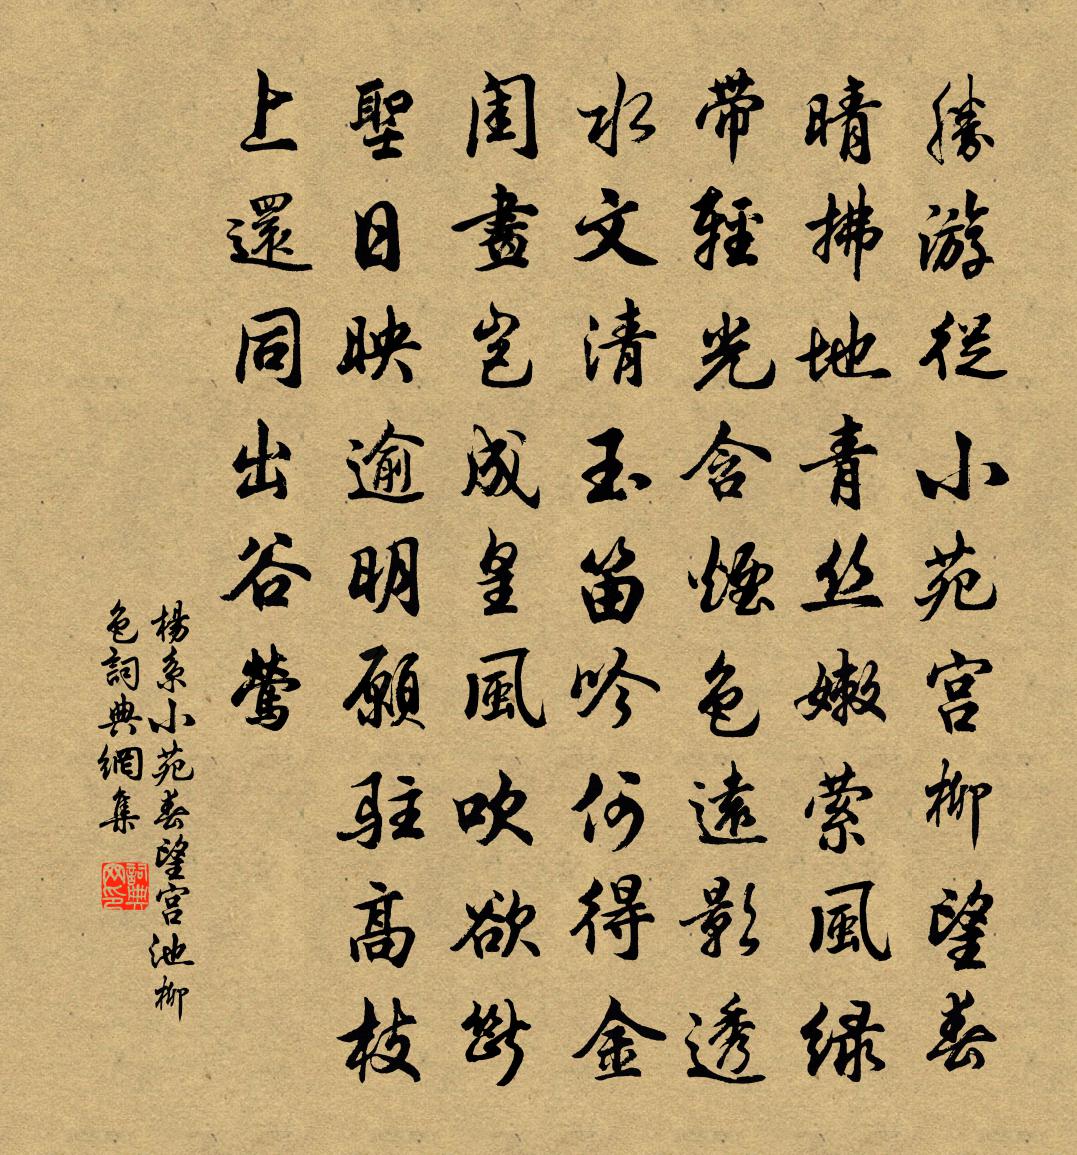 勝游從小苑宮柳望春
晴拂地青丝嫩縈風绿
帶輕光含煙色遠影透
水文清玉笛吟何得金
閨畫豈成皇風吹欲斷
聖日映逾明願駐高枝
上還同出谷鶯
楊系小苑春望宮池柳
色詞典網集
詞典
网印